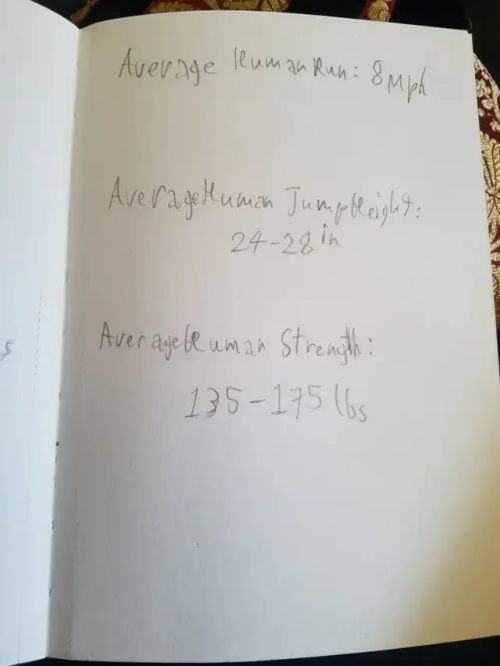 Average Human Run: 8 Mph
Average Human Jump Height:
24-28 in
Average Human Strength:
135-175 lbs